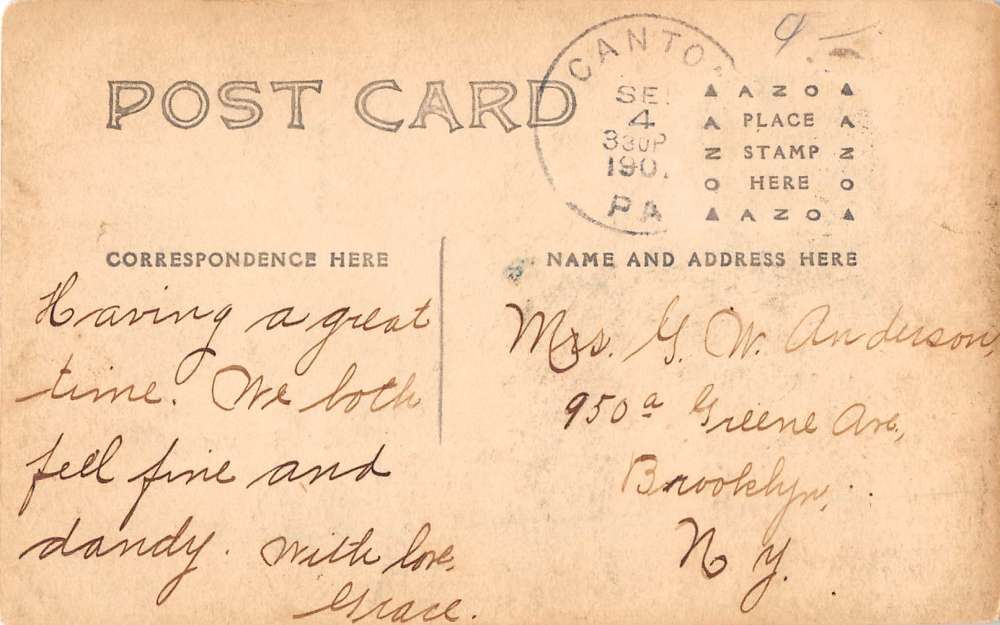 POST CARD
CANTO
SE
4
330P
190
PA
AZOA
PLACE
STAMP
HERE
AZOA
CORRESPONDENCE HERE
NAME AND ADDRESS HERE
Having a great
time. We both
feel fine and
dandy. With love,
Grace.
Mrs. G. W. Anderson,
950a Greene Ave.,
Brooklyn,
N. Y.